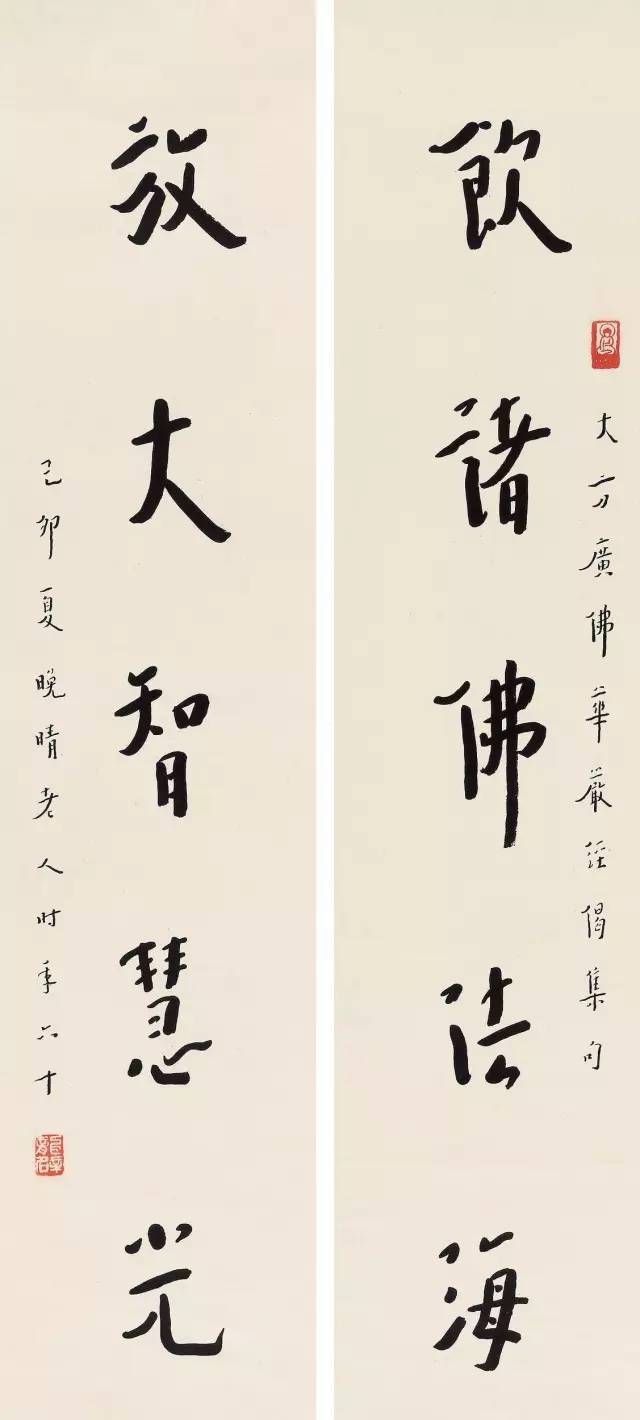 大方廣佛華嚴經偈集句
飲諸佛法海
放大智慧光
己卯夏晚晴老人时年六十